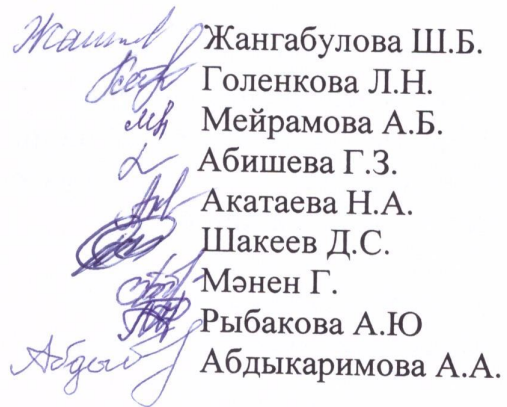 Жангабулова Ш.Б.
Голенкова Л.Н.
Мейрамова А.Б.
Абишева Г.З.
Акатаева Н.А.
Шакеев Д.С.
Мәнен Г.
Рыбакова А.Ю
Абдыкаримова А.А.